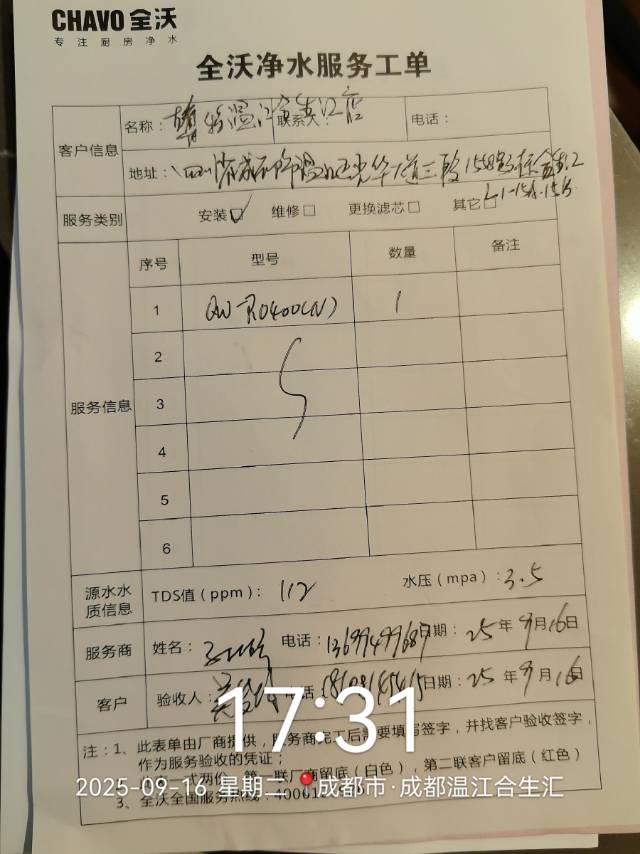 CHAVO 全沃
专 注 厨 房 净 水
全沃净水服务工单
客户信息
名称: 温江合生汇店 联系人: 电话:
地址: 光华大道三段1558号 合生汇
L1-15A-15B
服务类别 安装☑ 维修□ 更换滤芯□ 其它□
服务信息 序号 型号 数量 备注
1 QW-RO400(N) 1
2
3
4
5
6
源水水质信息 TDS值(ppm): 112 水压(mpa): 3.5
服务商 姓名: 电话: 13699499689 日期: 25年9月16日
客户 验收人: 日期: 25年9月16日
17:31
注:1、此表单由厂商提供,服务商完工后需要填写签字,并找客户验收签字,
作为服务验收的凭证;
第一联厂商留底(白色),第二联客户留底(红色)
2025-09-16 星期二 成都市·成都温江合生汇
3、全沃全国服务热线: